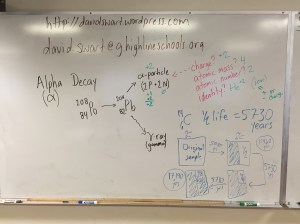 http://davidswart.wordpress.com
david.swart@highlineschools.org
Alpha Decay
(α)
208
84 Po
204
82 Pb
α-particle
(2P+2N)
charge? +2
atomic mass? 4
atomic number? 2
identity? He
γ-ray
(gamma)
14
6 C
½ life = 5730
years
Original
sample